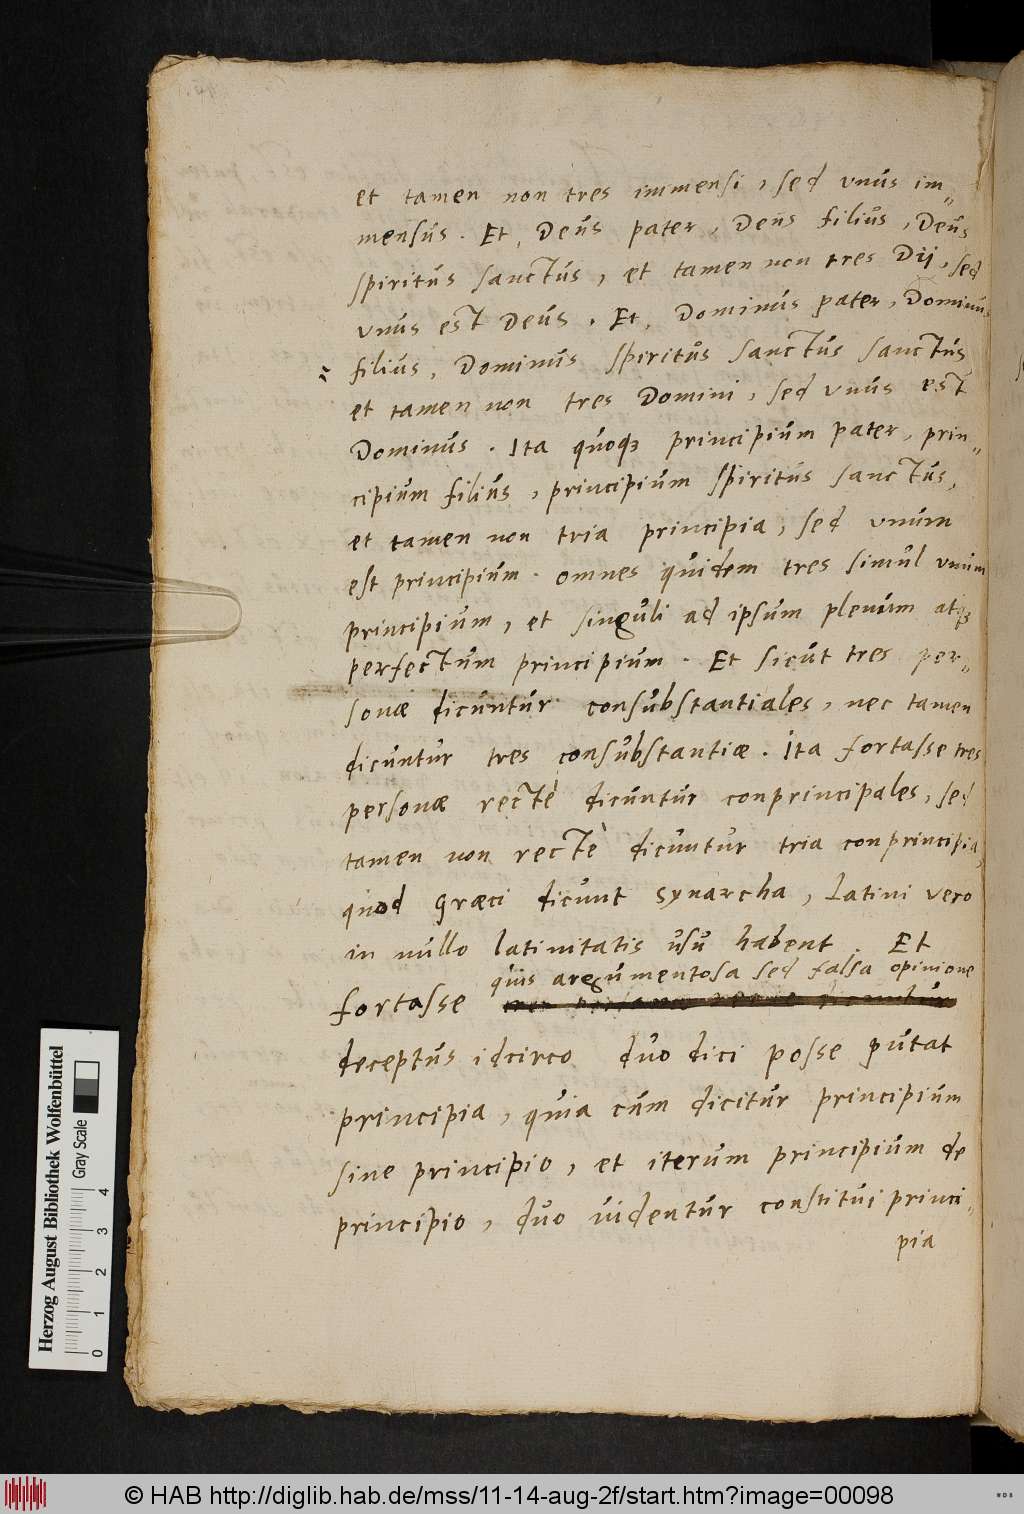 et tamen non tres immensi, sed vnus im„
mensus. Et, Deus pater, Deus filius, Deus
spiritus sanctus, et tamen non tres Dij, sed
vnus est Deus. Et, Dominus pater, Dominus
filius, Dominus spiritus sanctus sanctus
et tamen non tres Domini, sed vnus est
Dominus. Ita quoqꝫ principium pater, prin„
cipium filius, principium spiritus sanctus,
et tamen non tria principia, sed vnum
est principium. omnes quidem tres simul vnum
principium, et singuli ad ipsum plenum atqꝫ
perfectum principium. Et sicut tres per„
sonæ dicuntur consubstantiales, nec tamen
dicuntur tres consubstantiæ. Ita fortasse tres
personæ rectè dicuntur conprincipales, sed
tamen non rectè dicuntur tria conprincipia,
quod Græci dicunt synarcha, Latini vero
in nullo latinitatis usu habent. Et
quis aregumentosa sed falsa opinione
fortasse
deceptus idcirco duo dici posse putat
principia, quia cum dicitur principium
sine principio, et iterum principium de
principio, duo uidentur constitui princi„
pia
Herzog August Bibliothek Wolfenbüttel
Gray Scale
0 1 2 3 4
© HAB http://diglib.hab.de/mss/11-14-aug-2f/start.htm?image=00098